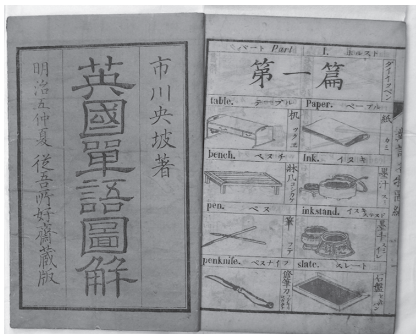 市川央坡著
英國單語圖解
明治五仲夏 從吾所好齋藏版
パート Part I. ホルスト
第一篇
table. テーブル
机 ツクエ
Paper. ペープル
紙 カミ
bench. ベンチ
Ink. インキ
墨汁
pen. ペン
筆 フデ
inkstand. インキスタンド
penknife. ペンナイフ
slate. スレート
石盤